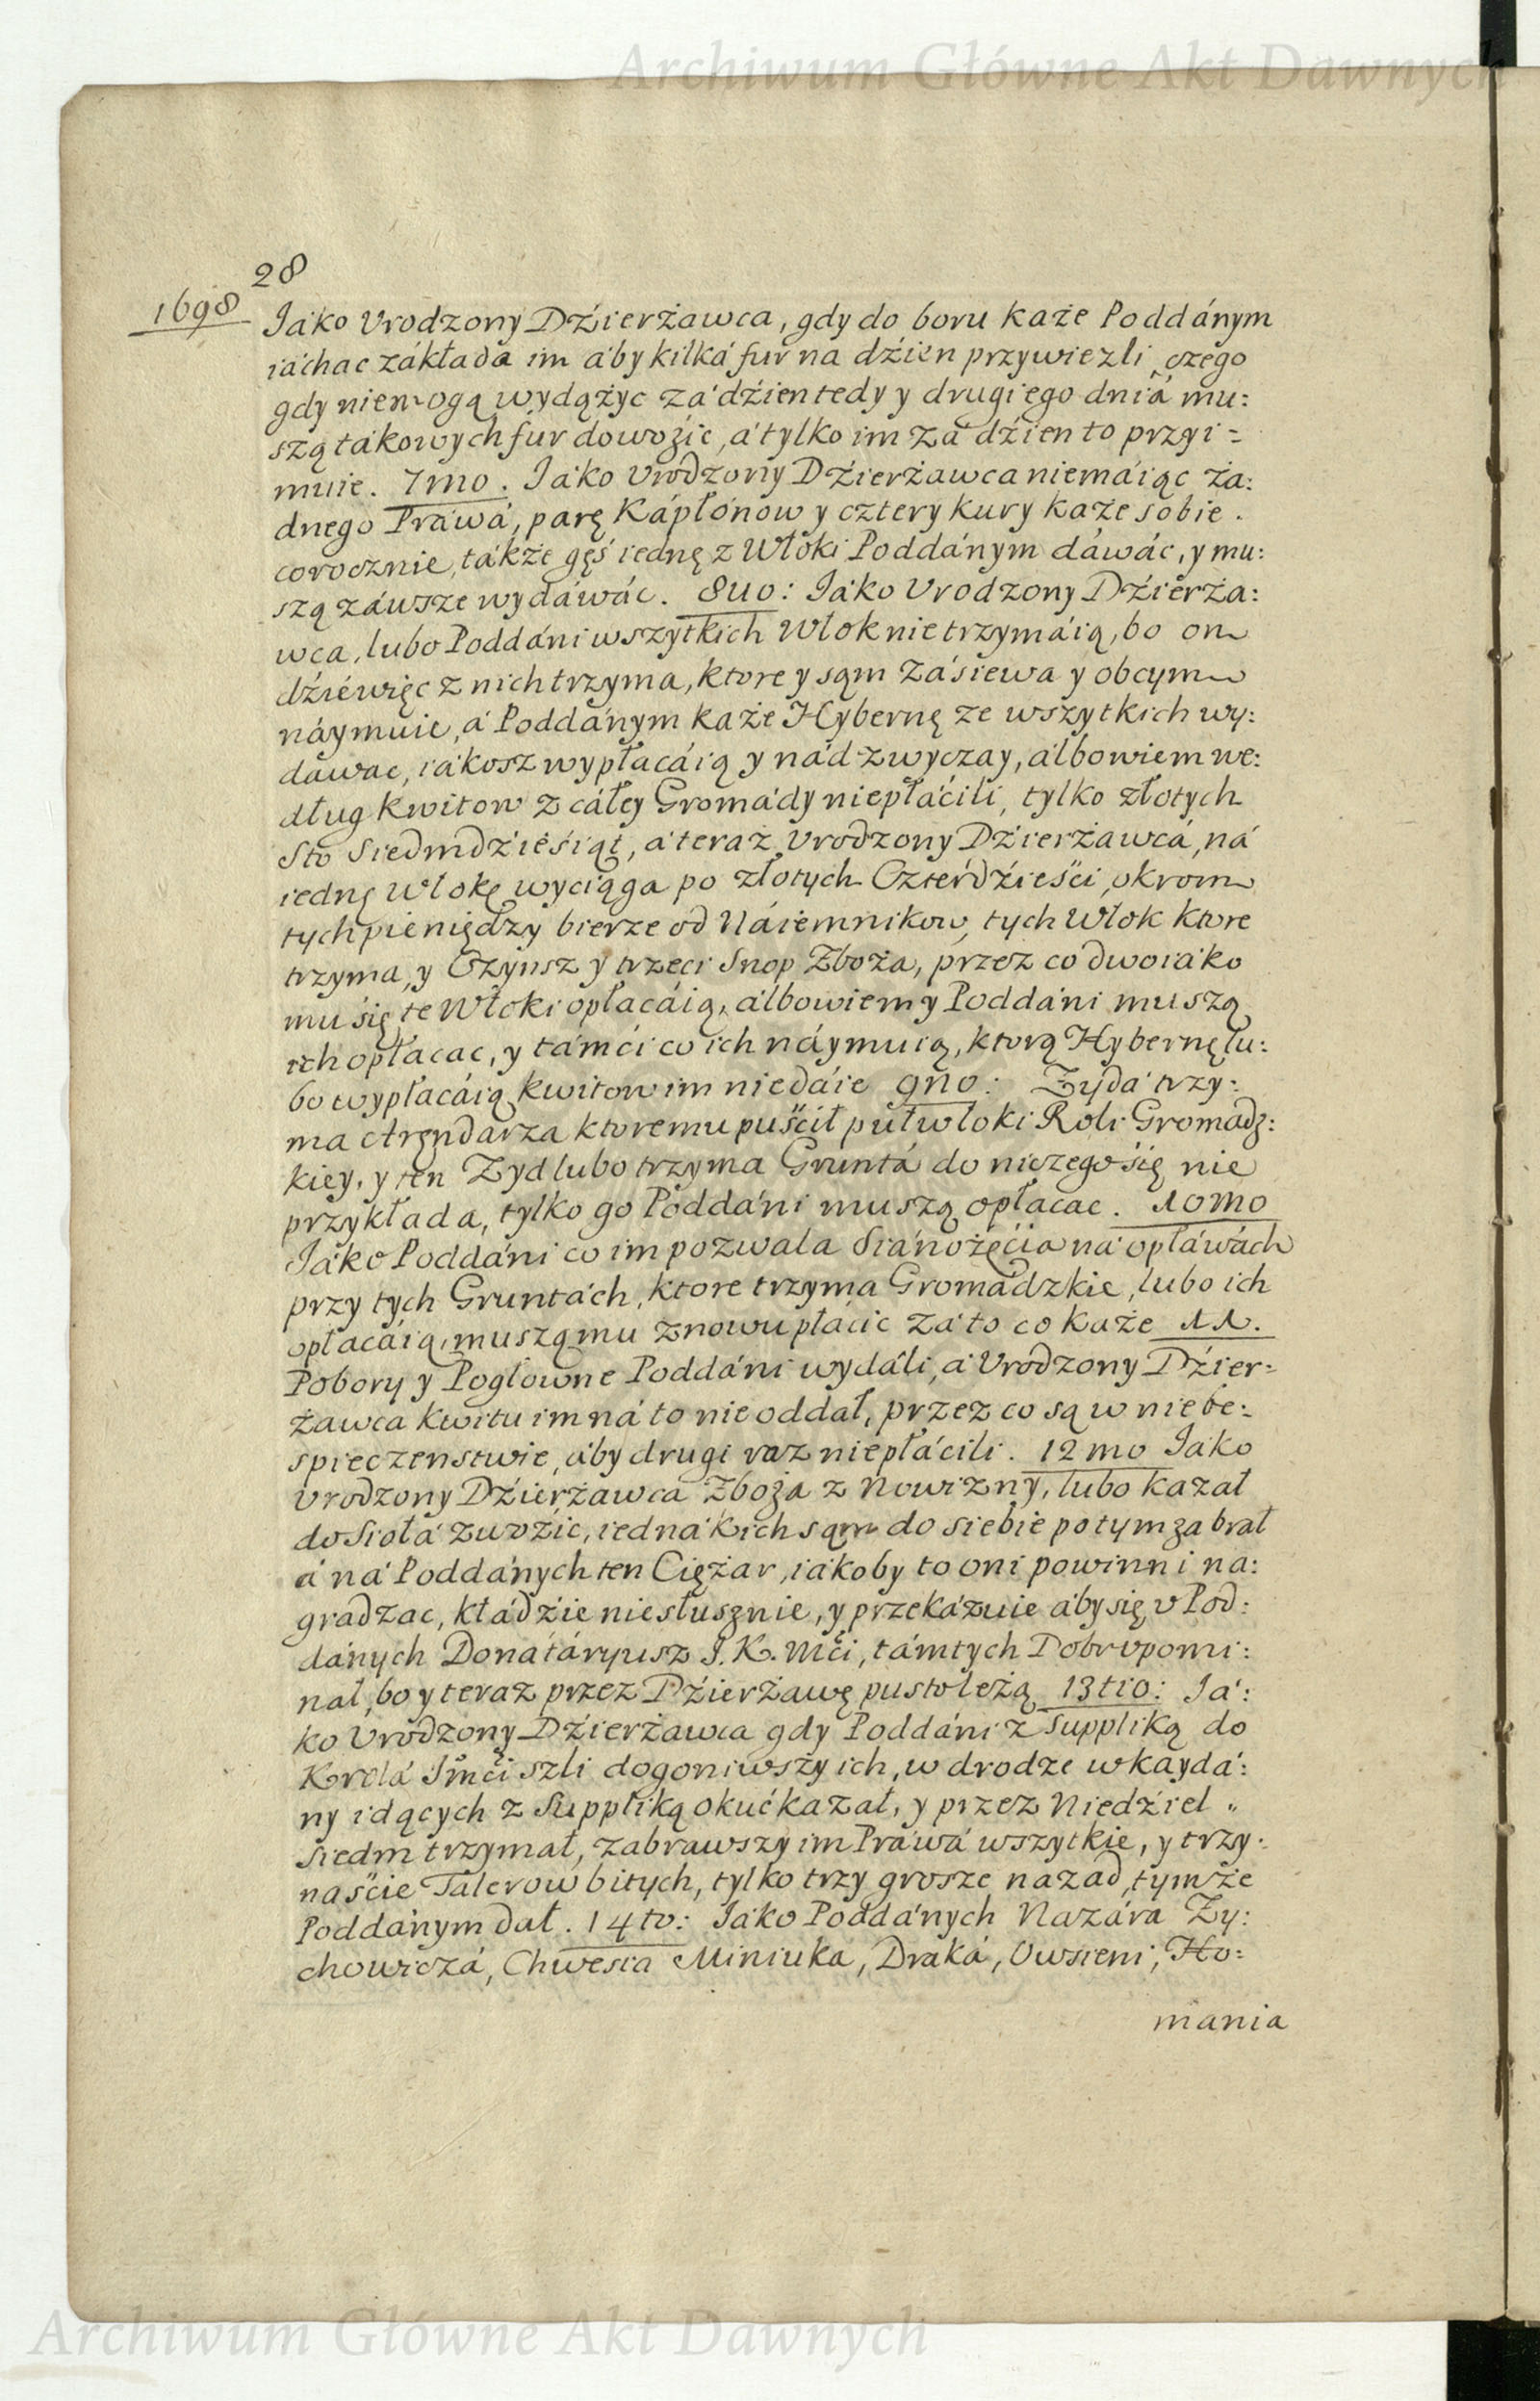 Archiwum Główne Akt Dawnych
28
1698
Jáko Vrodzony Dźierżawca, gdy do boru każe Poddánym
iáchac zákłada im áby kilká fur na dźien przywiezli, czego
gdy niemogą wydążyc zá dźien tedy y drugiego dniá mu:
szą tákowych fur dowoźic, á tylko im zá dźien to przyi=
muie. 7mo. Jáko Vrodzony Dźierżawca niemáiąc ża:
dnego Práwá, parę Kápłonow y cztery kury każe sobie.
corocznie, tákże gęś iednę z Włoki Poddánym dáwác, y mu:
szą záwsze wydáwác. 8uo: Jáko Vrodzony Dźierża:
wca, lubo Poddáni wszytkich Włok nie trzymáią, bo on
dźiewięc z nich trzyma, ktore y sąm zásiewa y obcym
náymuie, á Poddánym każe Hybernę ze wszytkich wy:
dawac, iákosz wypłacáią y nád zwyczay, álbowiem we:
dług kwitow z cáłey Gromády niepłácili, tylko złotych
Sto Siedmdźieśiąt, á teraz Vrodzony Dźierżawcá, ná
iednę Włokę wyciąga po złotych Czterdźieści, okrom
tych pieniędzy bierze od Náiemnikow, tych Włok ktore
trzyma, y Czynsz y trzeci Snop Zboża, przez co dwoiáko
mu się te Włoki opłacáią, álbowiem y Poddáni muszą
ich opłacac, y támci co ich náymuią, ktorą Hybernę lu:
bo wypłacáią kwitow im niedáie 9no: Zyda trzy:
ma Arędarza ktoremu puścił puł włoki Roli Gromadz:
kiey, y ten Zyd lubo trzyma Grunta do niczego się nie
przykłada, tylko go Poddáni muszą opłacac. 10mo
Jáko Poddáni co im pozwala Sianożęcia ná opłáwách
przy tych Gruntách, ktore trzyma Gromadzkie, lubo ich
opłacáią, muszą mu znowu płácic zá to co każe 11.
Pobory y Pogłowne Poddáni wydáli, á Vrodzony Dźier=
żawca kwitu im ná to nie oddał, przez co są w niebe:
spieczenstwie, áby drugi raz niepłácili. 12mo Jáko
Vrodzony Dźierżawca Zboża z Nowizny, lubo kazał
do Siołá zwoźic, iednák ich sąm do siebie potym zabrał
á ná Poddánych ten Ciężar, iákoby to oni powinni na:
gradzac, kłádźie niesłusznie, y przekázuie áby się v Pod:
dánych Donatáryusz J. K. Mći, támtych Dobr vpomi:
nał, bo y teraz przez Dźierżawę pusto leżą 13tio: Já:
ko Vrodzony Dźierżawca gdy Poddáni z Suppliką do
Krolá Jmći szli dogoniwszy ich, w drodze w kaydá:
ny idących z Suppliką okuć kazał, y przez Niedźiel
siedm trzymał, zabrawszy im Práwá wszytkie, y trzy:
naście Talerow bitych, tylko trzy grosze nazad, tymże
Poddánym dał. 14to: Jáko Poddánych Nazára Zy:
chowiczá, Chwesia Miniuka, Draká, Owsieni, Ho:
mania
Archiwum Główne Akt Dawnych